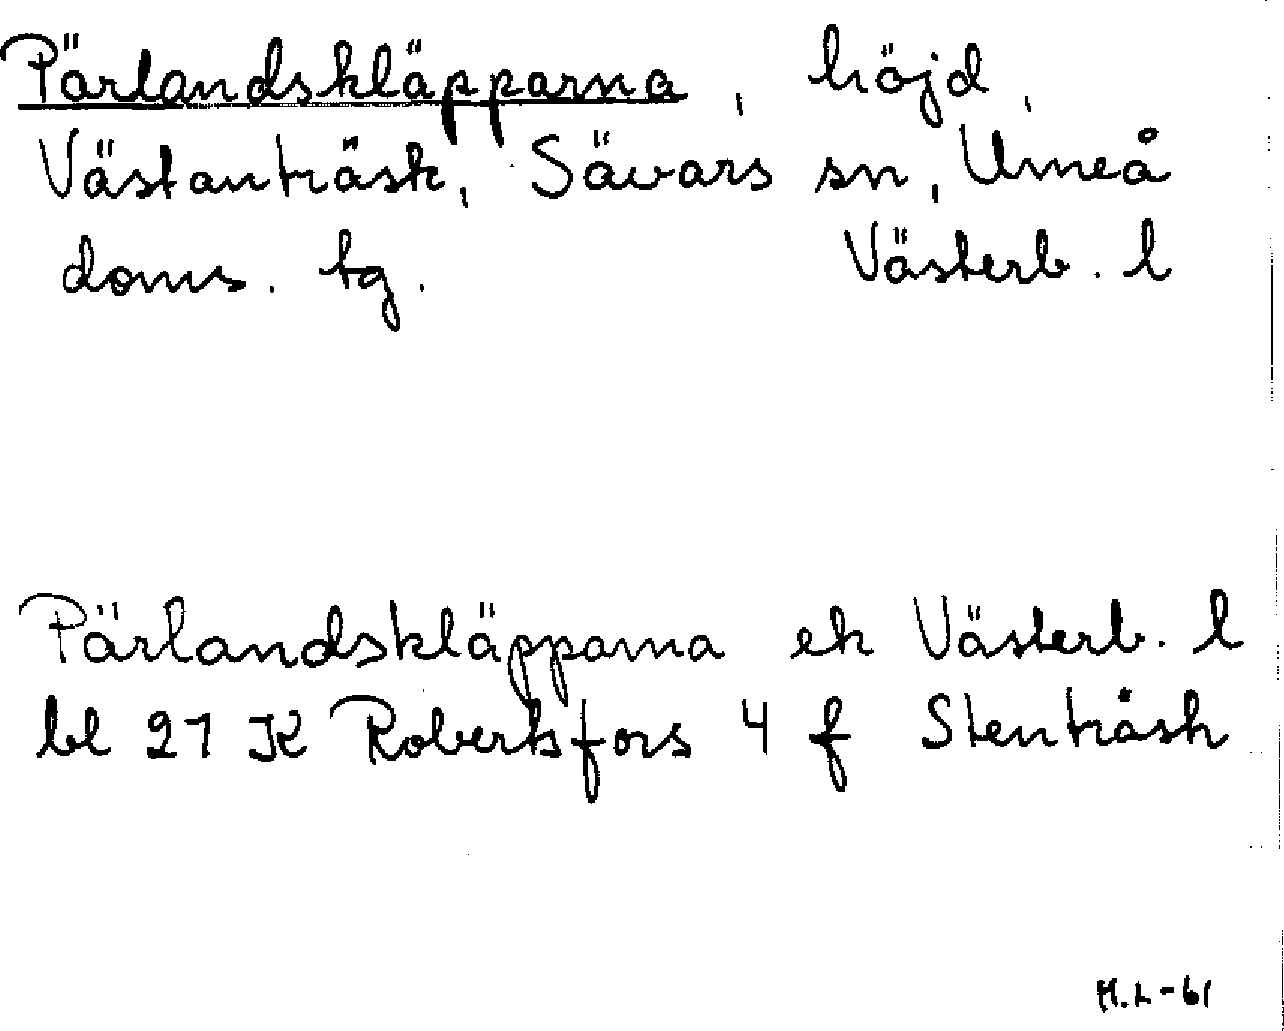 Pärlandskläpparna, höjd,
Västanträsk, Sävars sn, Umeå
doms. tg. Västerb. l
Pärlandskläpparna ek Västerb. l
bl 21 K Robertsfors 4 f Stenträsk
M.L-61